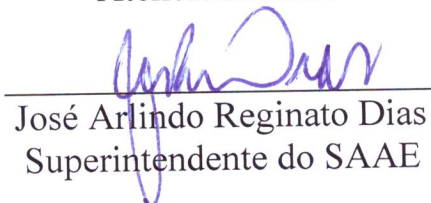 José Arlindo Reginato Dias
Superintendente do SAAE